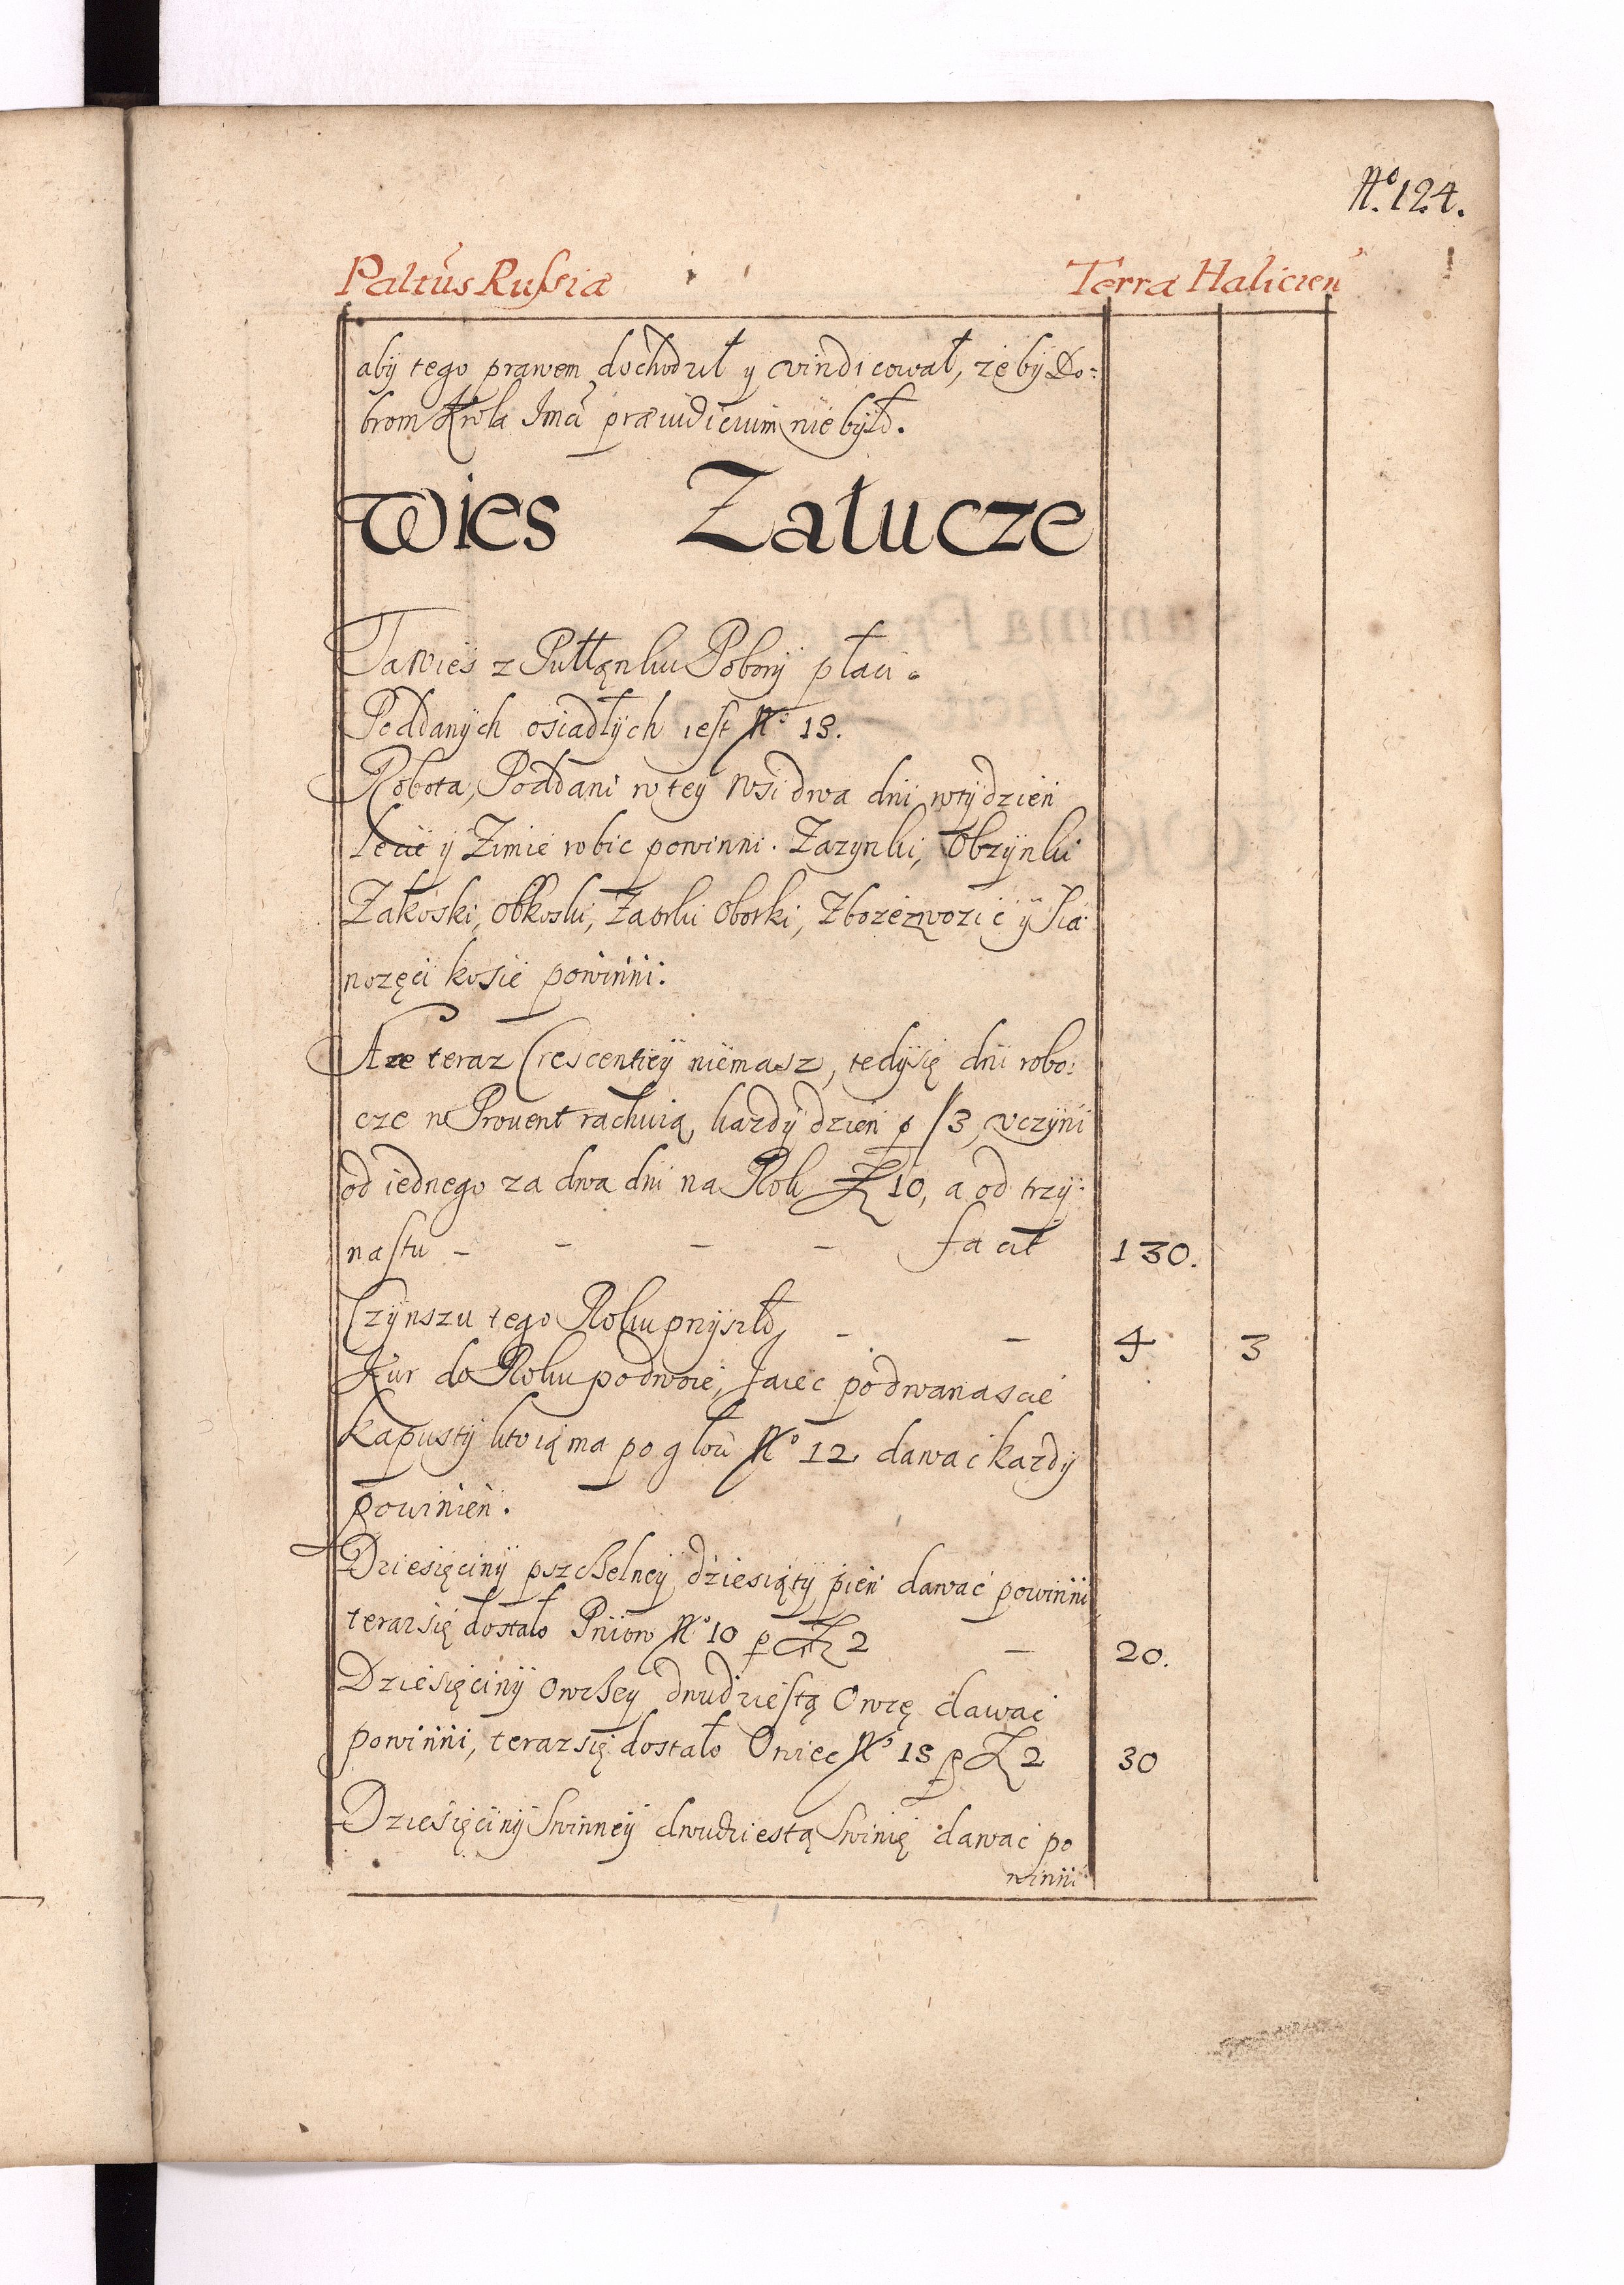 No. 124.
Paltūs Russiæ Terræ Halicien̄
aby tego prawem dochodził y vindicował, żeby Do:
brom Króla Jmći præiudicium nie było.
Wies Załucze
Ta Wieś z Pułłanku Pobory płaci.
Poddanych osiadłych iest No 13.
Robota, Poddani w tey Wsi dwa dni w tydzień
lecie y Zimie robic powinni. Zazynki, Obzynki
Zakoski, Obkoski, Zaorki Oborki, Zboże zwozić y Sia
nożęci kosić powinni.
A że teraz Crescentiey niemasz, tedy się dni robo:
cze w Prouent rachuią, każdy dzień p / 3, vczyni
od iednego za dwa dni na Rok Zł 10, a od trzy:
nastu – – – – facit 130.
Czynszu tego Roku przyszło – – 4 3
Kur do Roku po dwoie, Jaiec po dwanascie
Kapusty ktoią ma po głow No 12 dawać każdy
powinien.
Dziesięciny pszczelney dziesiąty pień dawać powinni
teraz się dostało Pniow No 10 p Zł 2 – 20.
Dziesięciny Owczey dwudziestą Owcę dawać
powinni, teraz się dostało Owiec No 15 p Zł 2 30
Dziesięciny Swinney dwudziestą Swinię dawać po
winni